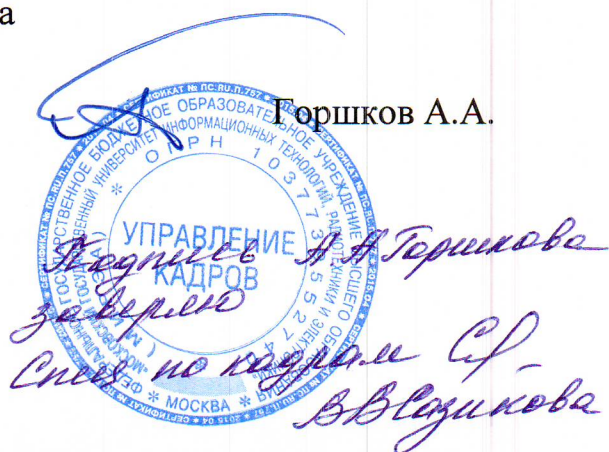 а
Горшков А.А.
СЕРТИФИКАТ № ПС.RU.П.757 * 2015 04 *
ФЕДЕРАЛЬНОЕ ГОСУДАРСТВЕННОЕ БЮДЖЕТНОЕ ОБРАЗОВАТЕЛЬНОЕ УЧРЕЖДЕНИЕ ВЫСШЕГО ОБРАЗОВАНИЯ
"МОСКОВСКИЙ ГОСУДАРСТВЕННЫЙ УНИВЕРСИТЕТ ИНФОРМАЦИОННЫХ ТЕХНОЛОГИЙ, РАДИОТЕХНИКИ И ЭЛЕКТРОНИКИ"
* ОГРН 1037739552740
УПРАВЛЕНИЕ
КАДРОВ
* МОСКВА *
Подпись А А Горшкова
заверяю
Спец по кадрам
В В Сазикова